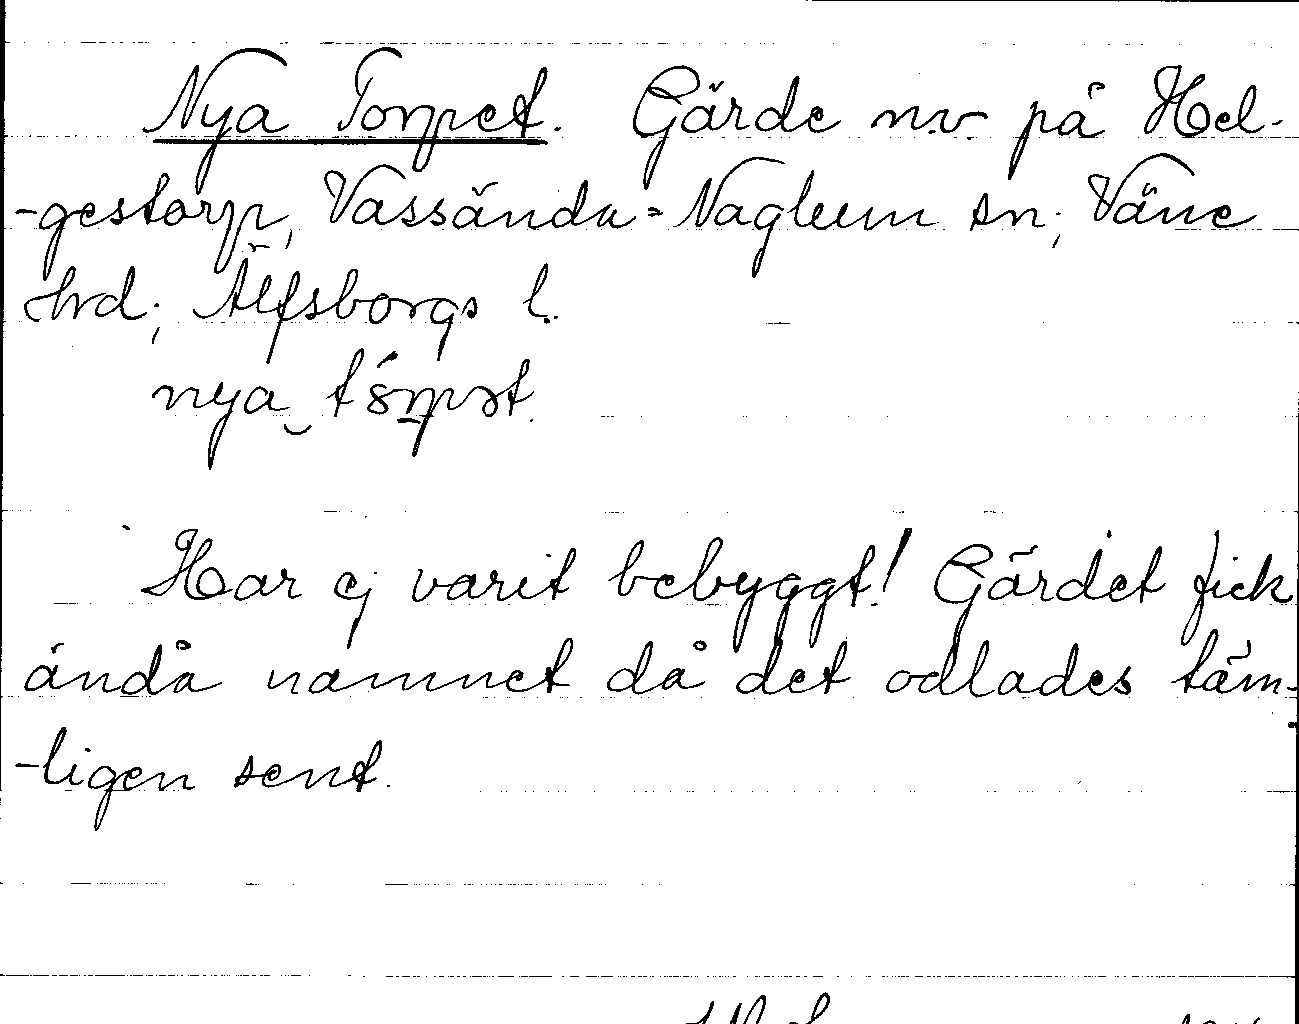 Nya Torpet. Gärde n.v. på Hel-
-gestorp, Vassända-Naglum sn; Väne
hrd; Älfsborgs l.
nya
Har ej varit bebyggt! Gärdet fick
ändå namnet då det odlades täm-
-ligen sent.